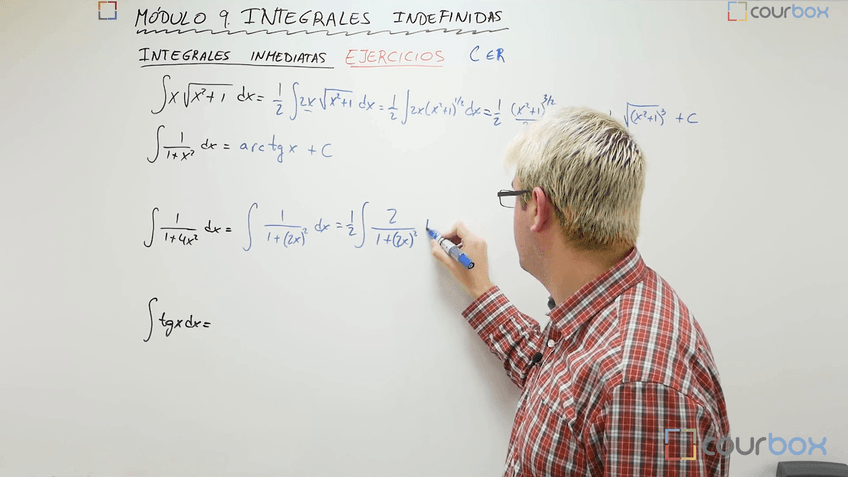 MÓDULO 9. INTEGRALES INDEFINIDAS
courbox
INTEGRALES INMEDIATAS EJERCICIOS C ∈ ℝ
∫ x √(x²+1) dx = 1/2 ∫ 2x √(x²+1) dx = 1/2 ∫ 2x (x²+1)^1/2 dx = 1/2 (x²+1)^3/2 √(x²+1)³ + C
∫ 1/(1+x²) dx = arctg x + C
∫ 1/(1+4x²) dx = ∫ 1/(1+(2x)²) dx = 1/2 ∫ 2/(1+(2x)²)
∫ tg x dx =
courbox